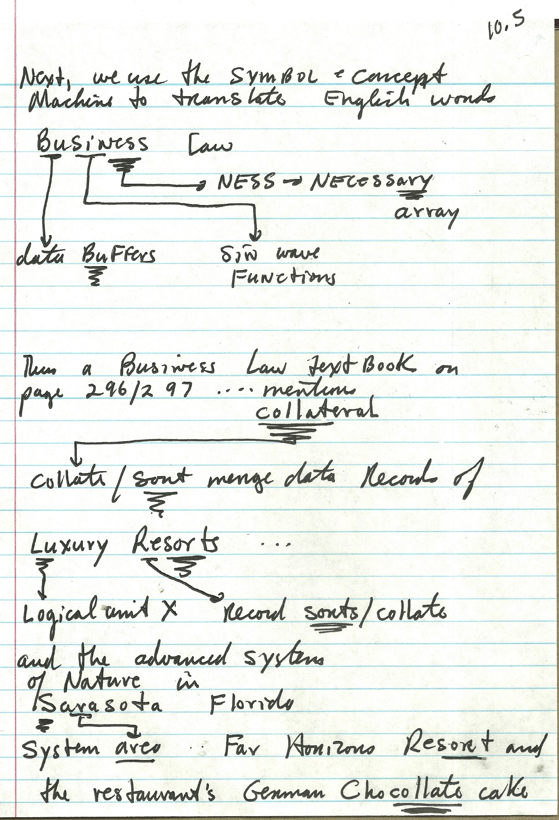 10.5
Next, we use the SYMBOL = Concept
Machine to translate English words
Business Law
NESS → NECessary
array
data BuFFers
Sin wave
Functions
Thus a Business Law Text Book on
page 296/297 .... mentions
collateral
collate / sort merge data Records of
Luxury Resorts ...
Logical unit X Record sorts/collate
and the advanced system
of Nature in
Sarasota Florida
System area .. Far Horizons Resort and
the restaurant's German Chocollate cake